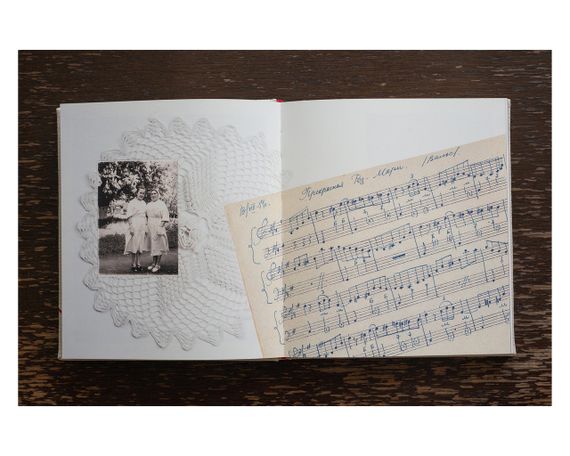 Прекрасная Роз-Мари. /Вальс/.